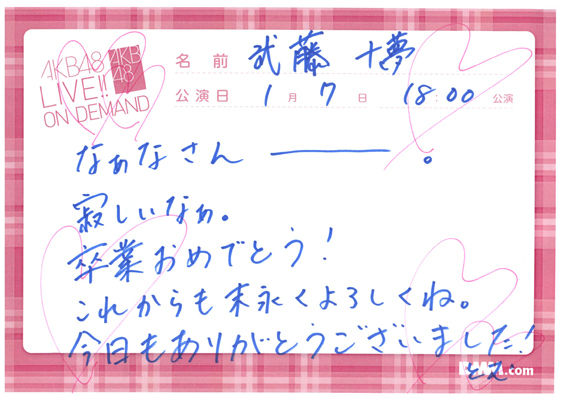 AKB48
LIVE!!
ON DEMAND
AKB
48
名前 武藤 十夢
公演日 1月7日 18:00 公演
なぁなさん ―――。
寂しいなぁ。
卒業おめでとう!
これからも末永くよろしくね。
今日もありがとうございました!
とむ
.com